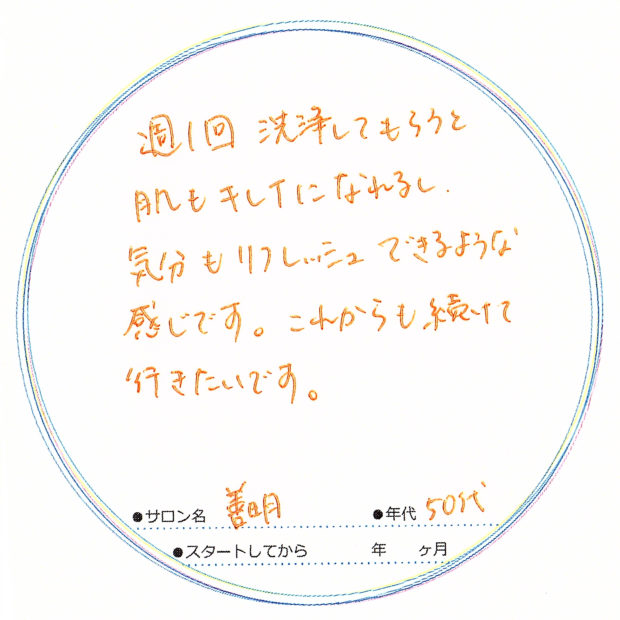 週1回 洗浄してもらうと
肌もキレイになれるし、
気分もリフレッシュできるような
感じです。これからも続けて
行きたいです。
●サロン名 善明 ●年代 50代
●スタートしてから 年 ヶ月